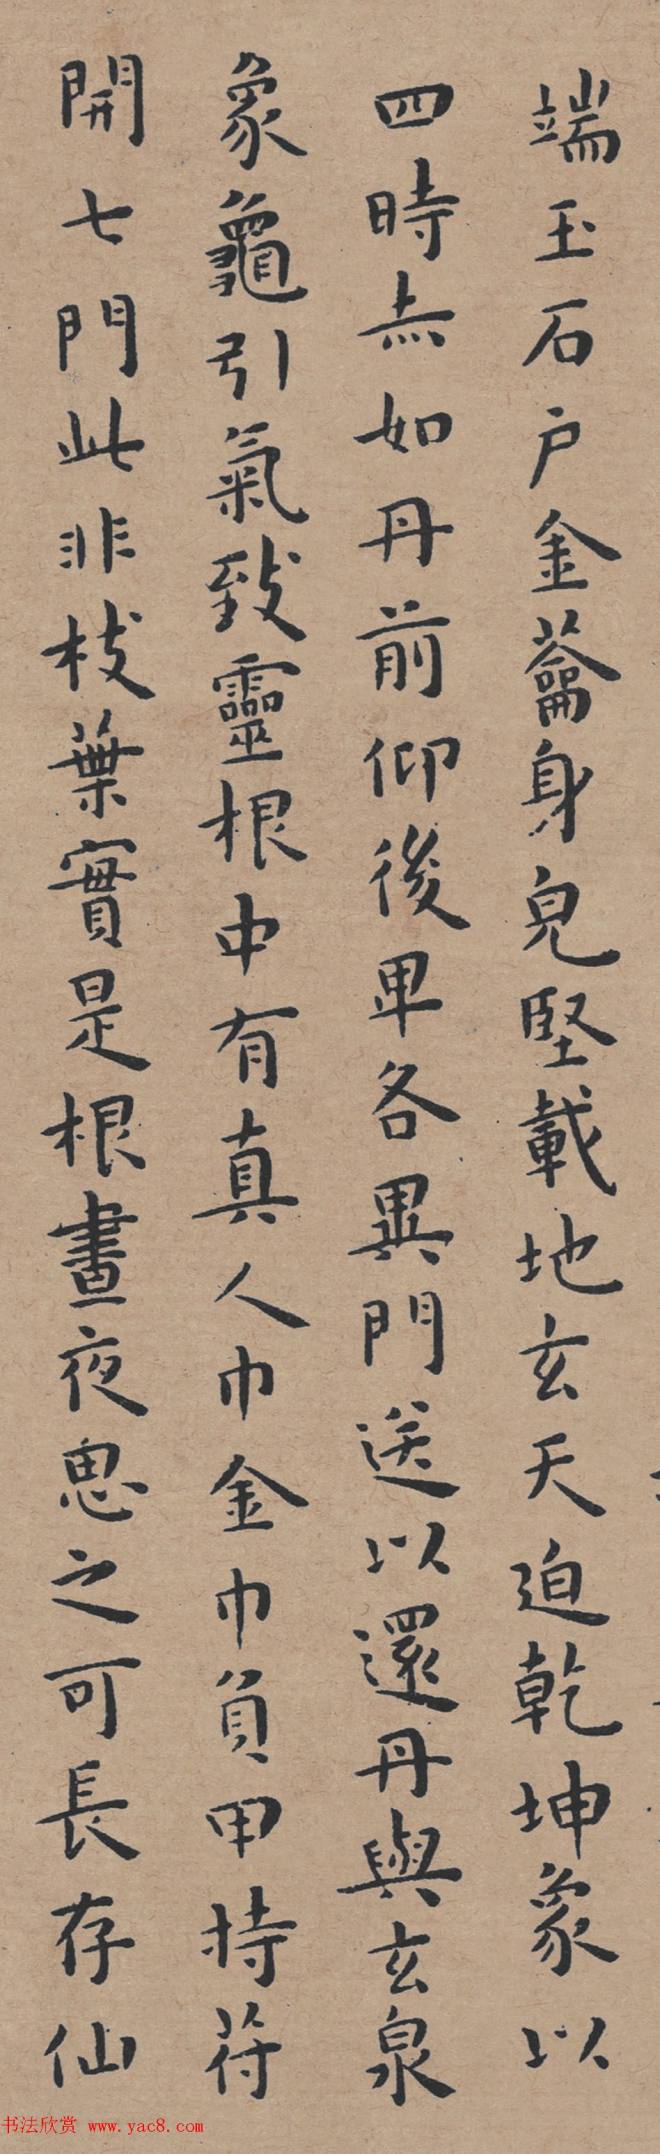 端玉石户金蘥身皃堅載地玄天迫乾坤象以
四時赤如丹前仰後卑各異門送以還丹與玄泉
象龜引氣致靈根中有真人巾金巾負甲持苻
開七門此非枝葉實是根晝夜思之可長存仙
书法欣赏 www.yac8.com